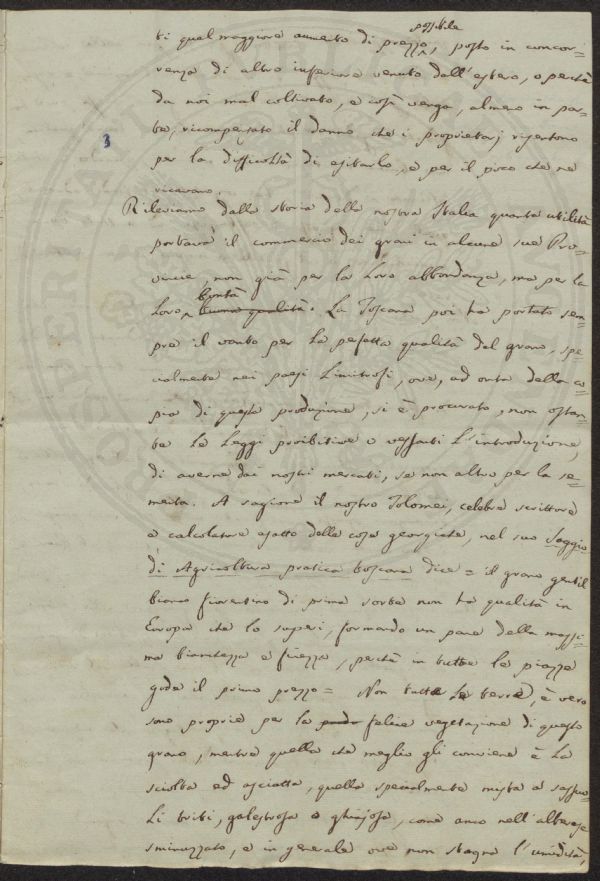 possibile
ti qual maggiore aumento di prezzo, posto in concor=
renza di altro inferiore venuto dall'estero, o perchè
da noi mal coltivato, e così venga, almeno in par=
te, ricompensato il danno che i proprietarj risentono
3
per la difficoltà di esitarlo, e per il poco che ne
ricavano.
Rileviamo dalla storia della nostra Italia quanta utilità
portava il commercio dei grani in alcune sue Pro=
vincie, non già per la Loro abbondanza, ma per la
bontà
Loro buona qualità. La Toscana poi ha portato sem=
pre il vanto per la perfetta qualità del grano, spe=
cialmente nei paesi Limitrofi, ove, ad onta della co=
pia di questa produzione, si è procurato, non ostan=
te le Leggi proibitive o vessanti L'introduzione,
di averne dai nostri mercati, se non altro per la se=
menta. A ragione il nostro Tolomei, celebre scrittore
e calcolatore esatto delle cose georgiche, nel suo Saggio
di Agricoltura pratica toscana dice = il grano gentil
bianco fiorentino di prima sorte non ha qualità in
Europa che lo superi, formando un pane della massi=
ma bianchezza e finezza, perchè in tutte le piazze
gode il primo prezzo = Non tutte Le terre, è vero
sono proprie per la felice vegetazione di questo
grano, mentre quella che meglio gli conviene è La
sciolta ed asciutta, quella specialmente mista a sassuo=
Li triti, galestrosa o ghiajosa, come anco nell'alberese
sminuzzato, e in generale ove non stagna l'umidità,